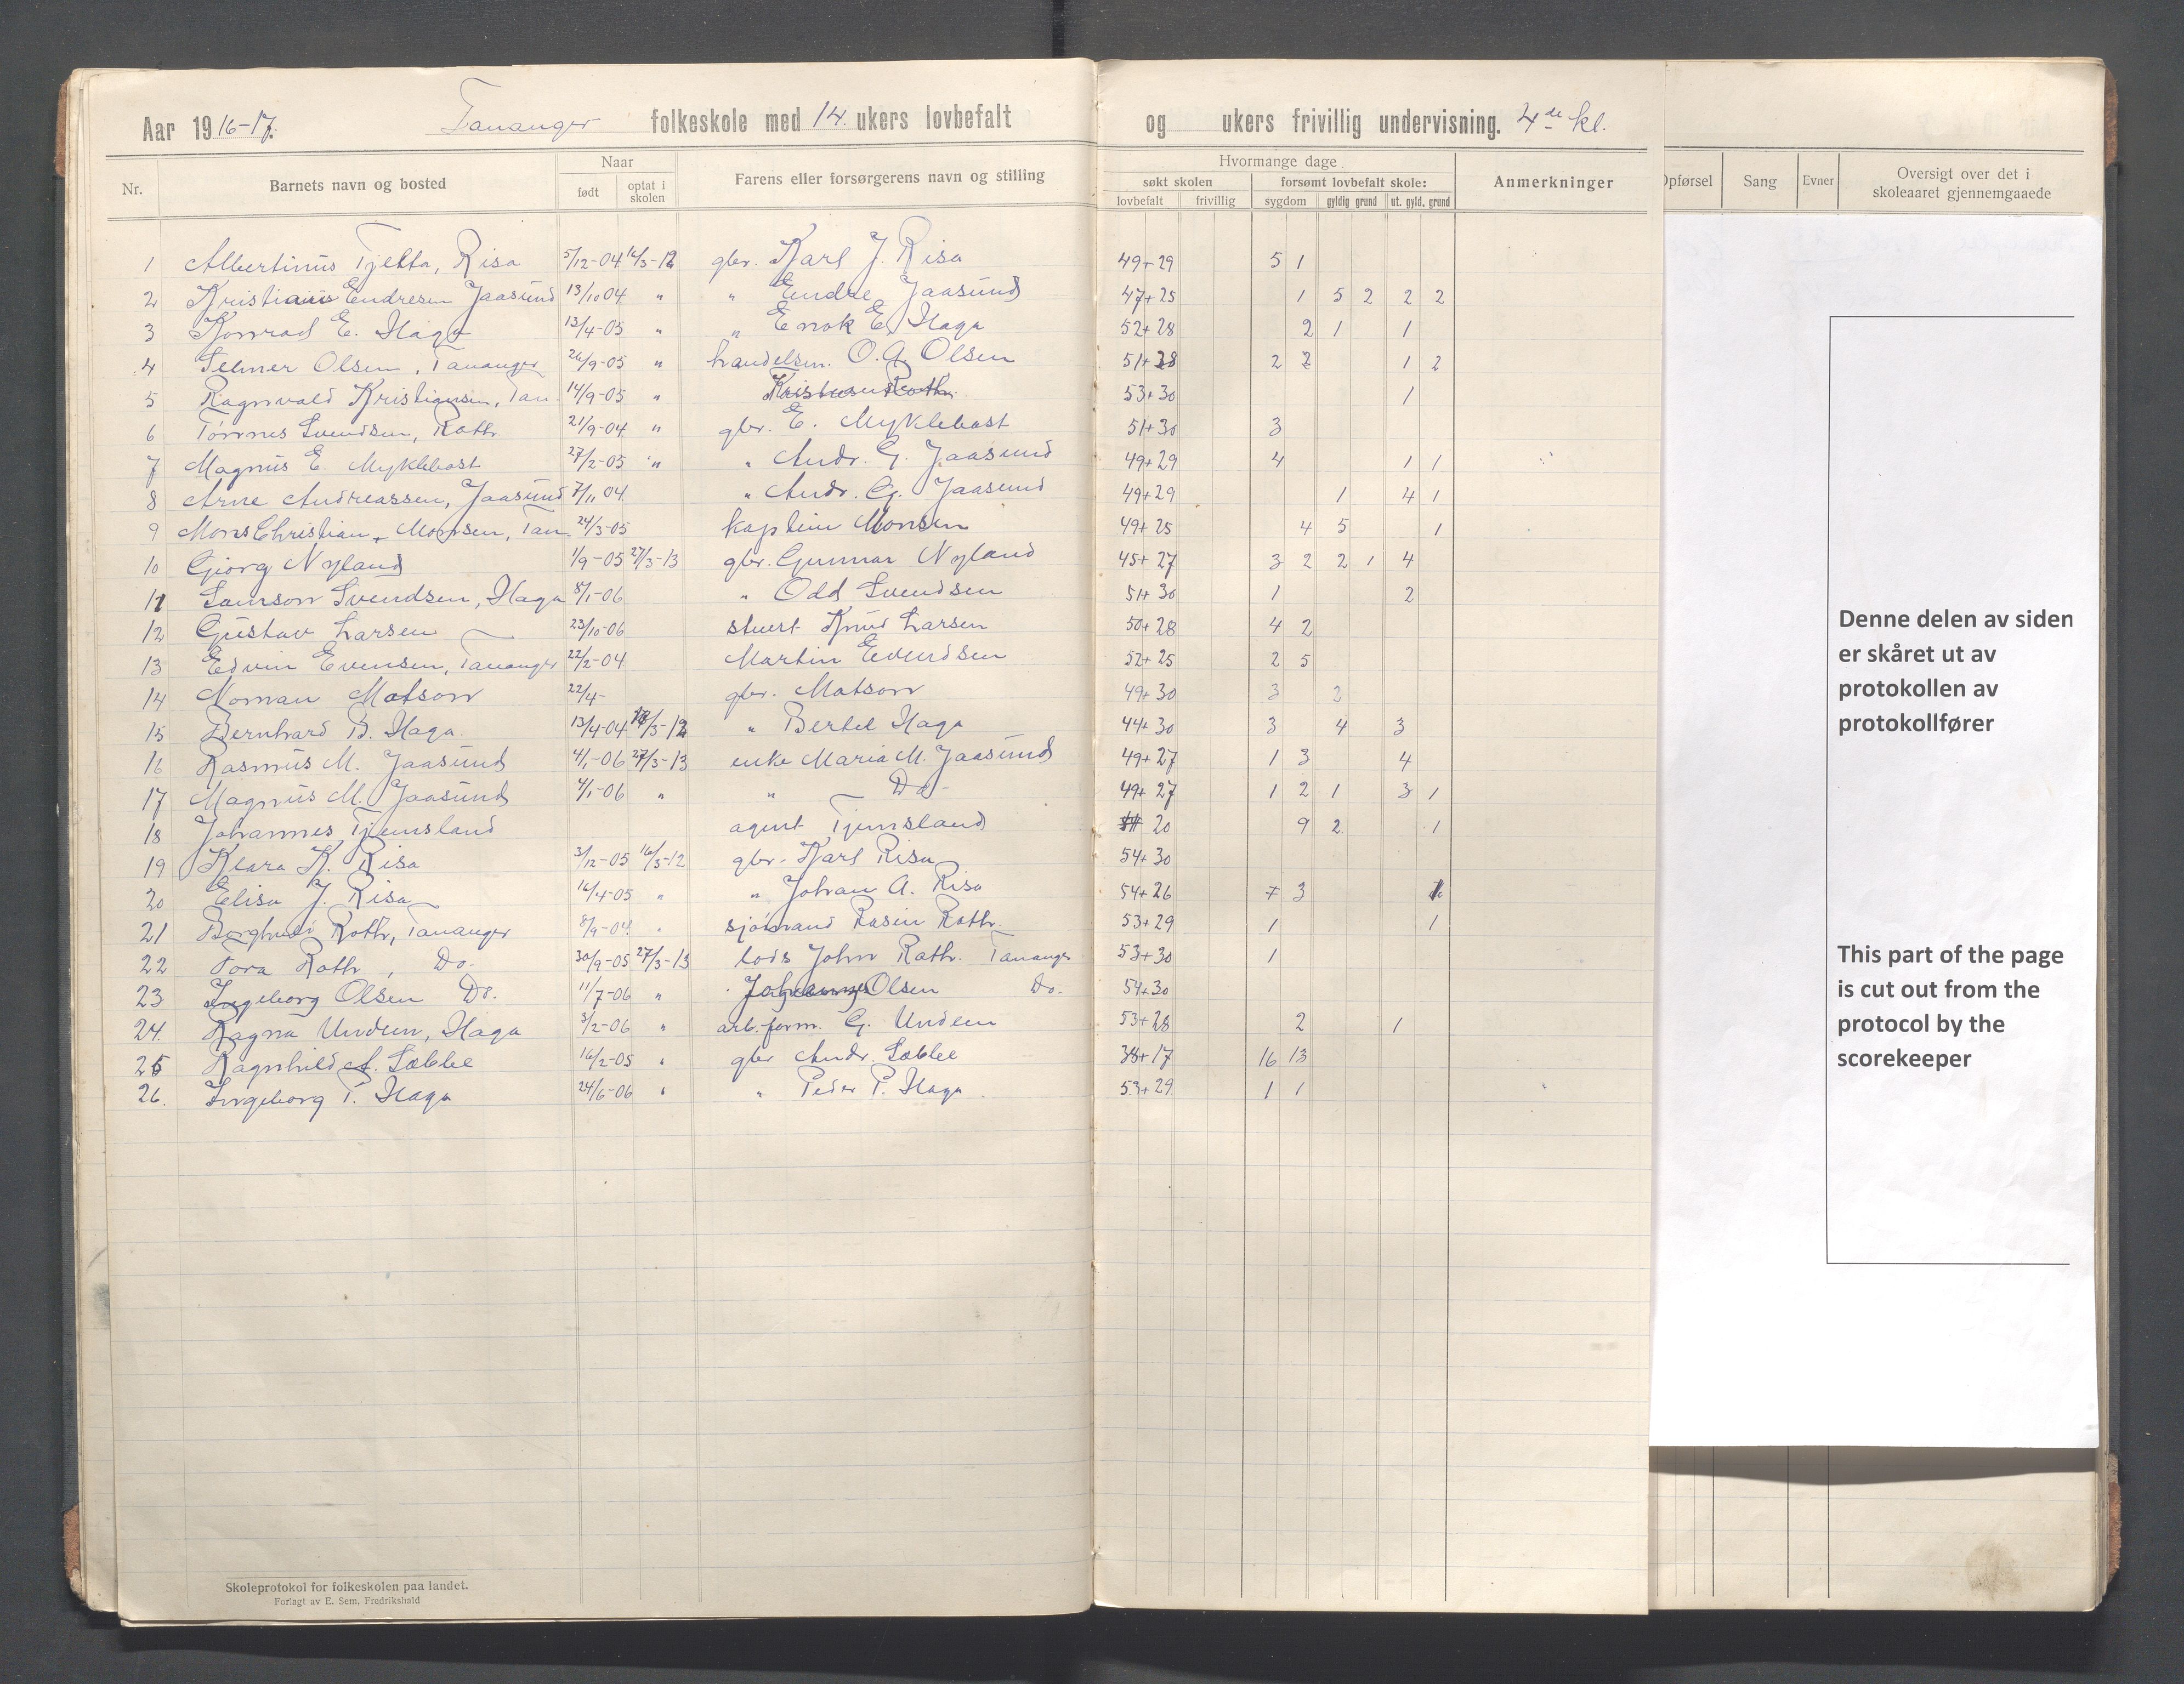 Aar 1916-17. Tananger folkeskole med 14. ukers lovbefalt og ukers frivillig undervisning. 4de kl.
Nr. Barnets navn og bosted Naar født optat i skolen Farens eller forsørgerens navn og stilling Hvormange dage søkt skolen lovbefalt frivillig forsømt lovbefalt skole: sygdom gyldig grund ut. gyld. grund Anmerkninger
Opførsel Sang Evner Oversigt over det i skoleaaret gjennemgaaede
1 Albertinus Tjelta, Risa 5/12-04 16/3-12 gbr. Karl J. Risa 49+29 5 1
2 Kristianis Endresen Jaasund 13/10 04 " " Endre Jaasund 47+25 1 5 2 2 2
3 Konrad E. Haga 13/4-05 " " Enok E. Haga 52+28 2 1 1
4 Selmer Olsen, Tananger 26/9-05 " handelsm. O. G. Olsen 51+28 2 2 1 2
5 Ragnvald Kristiansen, Tan 14/9-05 " 53+30 1
6 Tønnes Svendsen, Roth 21/9-04 " gbr. E. Myklebost 51+30 3
7 Magnus E. Myklebost 27/2-05 " " Andr. G. Jaasund 49+29 4 1 1
8 Arne Andreassen, Jaasund 7/11 04 " Andr. G. Jaasund 49+29 1 4 1
9 Mons Christian Monsen, Tan 24/3-05 kaptein Monsen 49+25 4 5 1
10 Giorg Nyland 1/9-05 27/3-13 gbr. Gunnar Nyland 45+27 3 2 2 1 4
11 Samson Svendsen, Haga 8/1-06 " Odd Svendsen 51+30 1 2
12 Gustav Larsen 23/10-06 stuert Knud Larsen 50+28 4 2
13 Edvin Evensen, Tananger 22/2-04 Martin Evendsen 52+25 2 5
14 Noman Matson 22/4- gbr. Matson 49+30 3 2
15 Bernhard B. Haga 13/4-04 18/3-12 " Bertel Haga 44+30 3 4 3
16 Rasmus M. Jaasund 4/1-06 27/3-13 enke Maria M. Jaasund 49+27 1 3 4
17 Magnus M. Jaasund 4/1-06 " " Do- 49+27 1 2 1 3 1
18 Johannes Tjemsland agent Tjemsland 20 9 2 1
19 Klara K. Risa 3/12-05 16/3-12 gbr. Karl Risa 54+30
20 Elisa J. Risa 16/4-05 " " Johan A. Risa 54+26 7 3
21 Borghild Roth, Tananger 8/9-04 " sjømand Rasin Roth. 53+29 1 1
22 Tora Roth, Do- 30/9-05 27/3-13 lods John Roth. Tananger 53+30 1
23 Ingeborg Olsen Do. 11/7-06 " Olsen Do- 54+30
24. Ragna Undem, Haga 3/2-06 " arb.form. G. Undem 53+28 2 1
25 Ragnhild A. Sæblee 16/2-05 " gbr Andr. Sæblee 38+17 16 13
26. Ingeborg P. Haga 24/6-06 " " Peder P. Haga 53+29 1 1
Denne delen av siden
er skåret ut av
protokollen av
protokollfører
This part of the page
is cut out from the
protocol by the
scorekeeper
Skoleprotokol for folkeskolen paa landet.
Forlagt av E. Sem, Fredrikshald